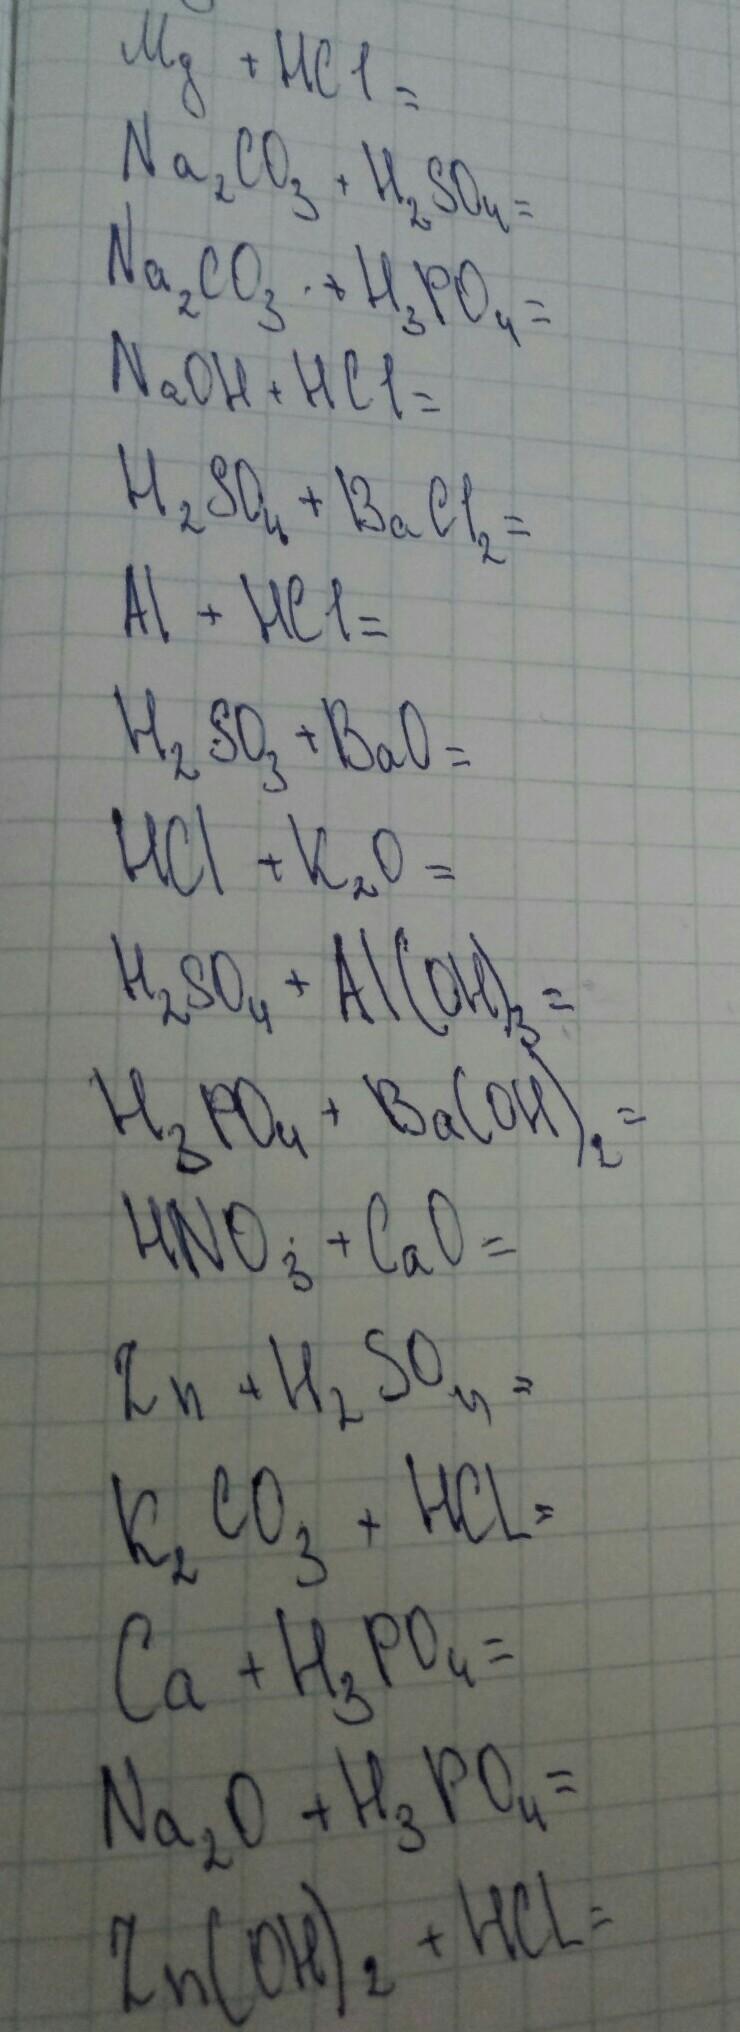 Mg + HCl =
Na₂CO₃ + H₂SO₄ =
Na₂CO₃ + H₃PO₄ =
NaOH + HCl =
H₂SO₄ + BaCl₂ =
Al + HCl =
H₂SO₃ + BaO =
HCl + K₂O =
H₂SO₄ + Al(OH)₃ =
H₃PO₄ + Ba(OH)₂ =
HNO₃ + CaO =
Zn + H₂SO₄ =
K₂CO₃ + HCL =
Ca + H₃PO₄ =
Na₂O + H₃PO₄ =
Zn(OH)₂ + HCL =